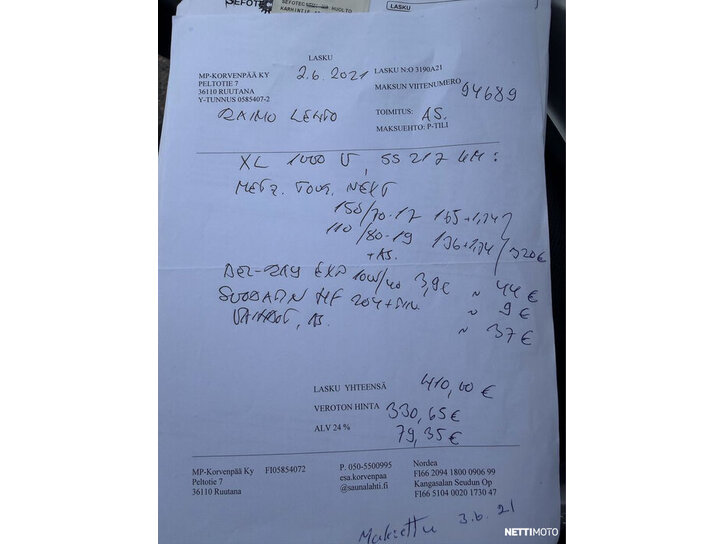 SEFOTEC HUOLTO
LASKU
LASKU
MP-KORVENPÄÄ KY 2.6.2021 LASKU N:O 3190A21
PELTOTIE 7 MAKSUN VIITENUMERO 94689
36110 RUUTANA
Y-TUNNUS 0585407-2
RAIMO LEHTO TOIMITUS: AS.
MAKSUEHTO: P-TILI
XL 1000 V, 55 217 KM:
METZ. TOUR. NEXT
150/70-17 165+1,74
110/80-19 136+1,74 / 320€
+AS.
EXP 10W/40 3,9 ~ 44 €
SUODATIN HF 204 + ~ 9 €
VAIHDOT, AS. ~ 37 €
LASKU YHTEENSÄ 410,00 €
VEROTON HINTA 330,65€
ALV 24 % 79,35€
MP-Korvenpää Ky FI05854072 P. 050-5500995 Nordea
Peltotie 7 esa.korvenpaa FI66 2094 1800 0906 99
36110 Ruutana @saunalahti.fi Kangasalan Seudun Op
FI66 5104 0020 1730 47
Maksettu 3.6.21
NETTIMOTO